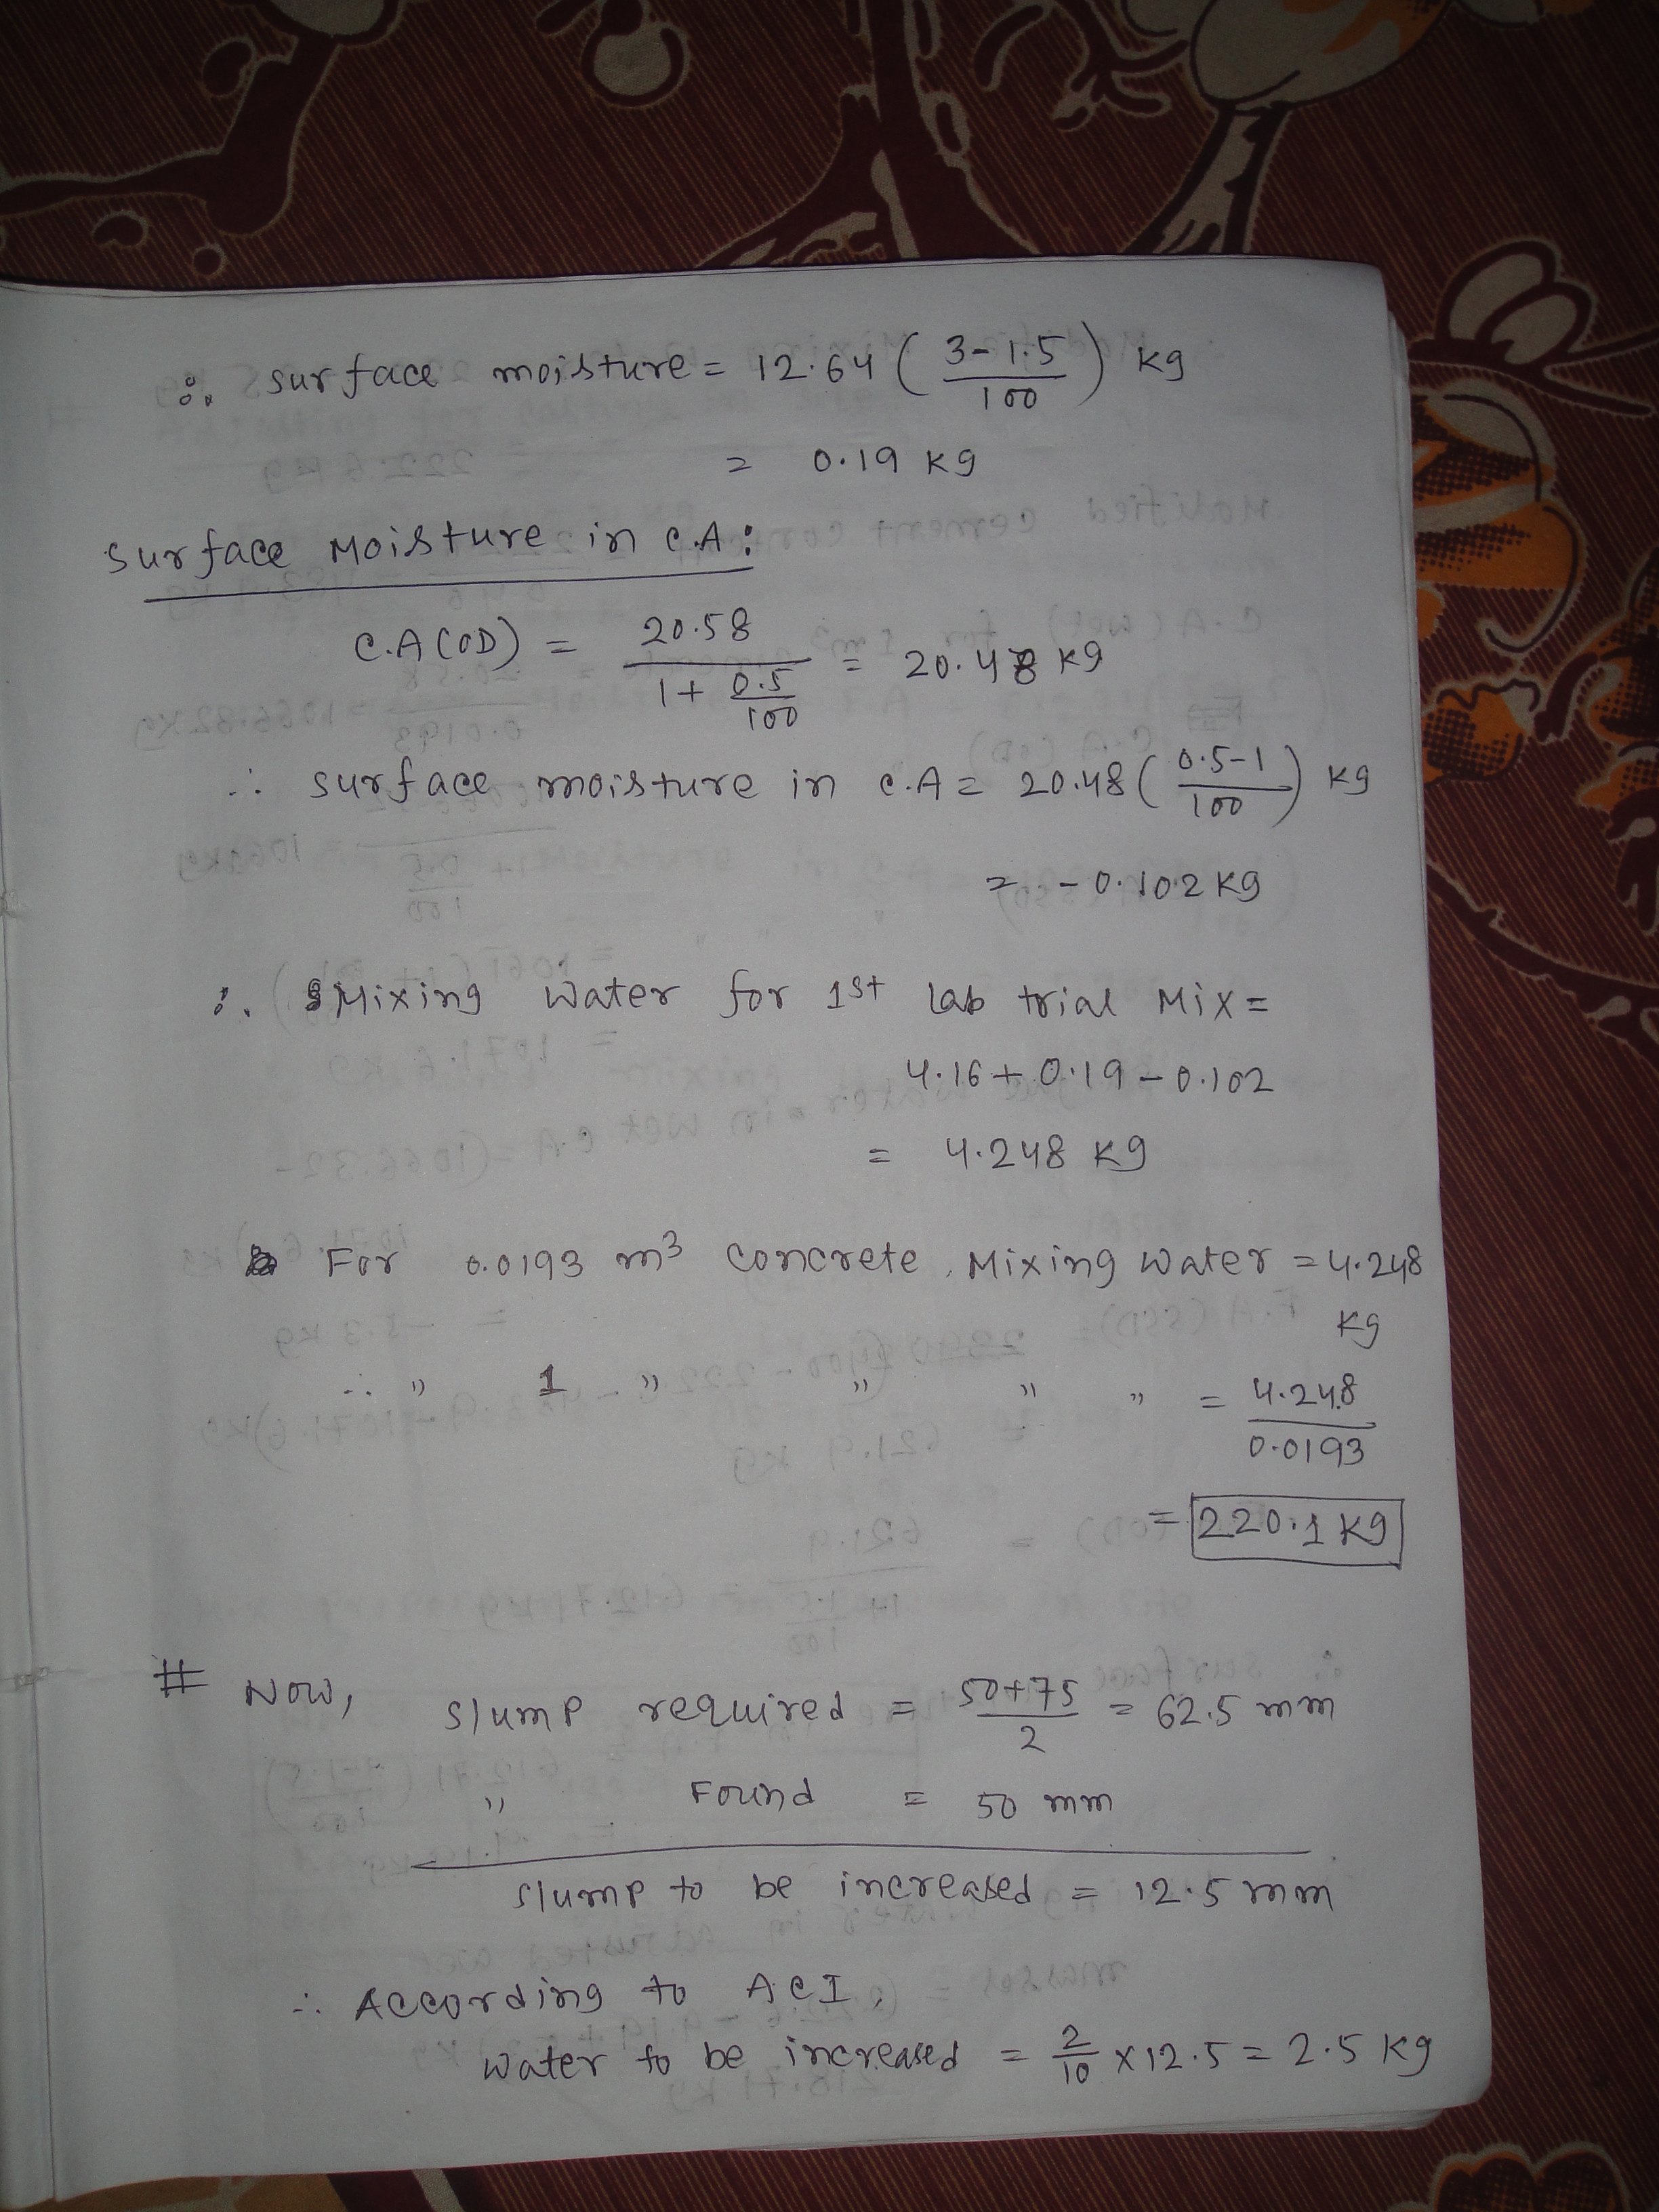 ∴ surface moisture = 12.64 ( (3-1.5)/100 ) kg
= 0.19 kg
Surface Moisture in C.A:
C.A(OD) = 20.58 / (1 + 0.5/100) = 20.48 kg
∴ surface moisture in C.A = 20.48 ( (0.5-1)/100 ) kg
= - 0.102 kg
∴ Mixing Water for 1st lab trial Mix =
4.16 + 0.19 - 0.102
= 4.248 kg
For 0.0193 m³ concrete, Mixing water = 4.248
kg
∴ " 1 " " " " = 4.248 / 0.0193
= 220.1 kg
# Now, slump required = (50+75)/2 = 62.5 mm
" Found = 50 mm
slump to be increased = 12.5 mm
∴ According to ACI,
water to be increased = 2/10 × 12.5 = 2.5 kg